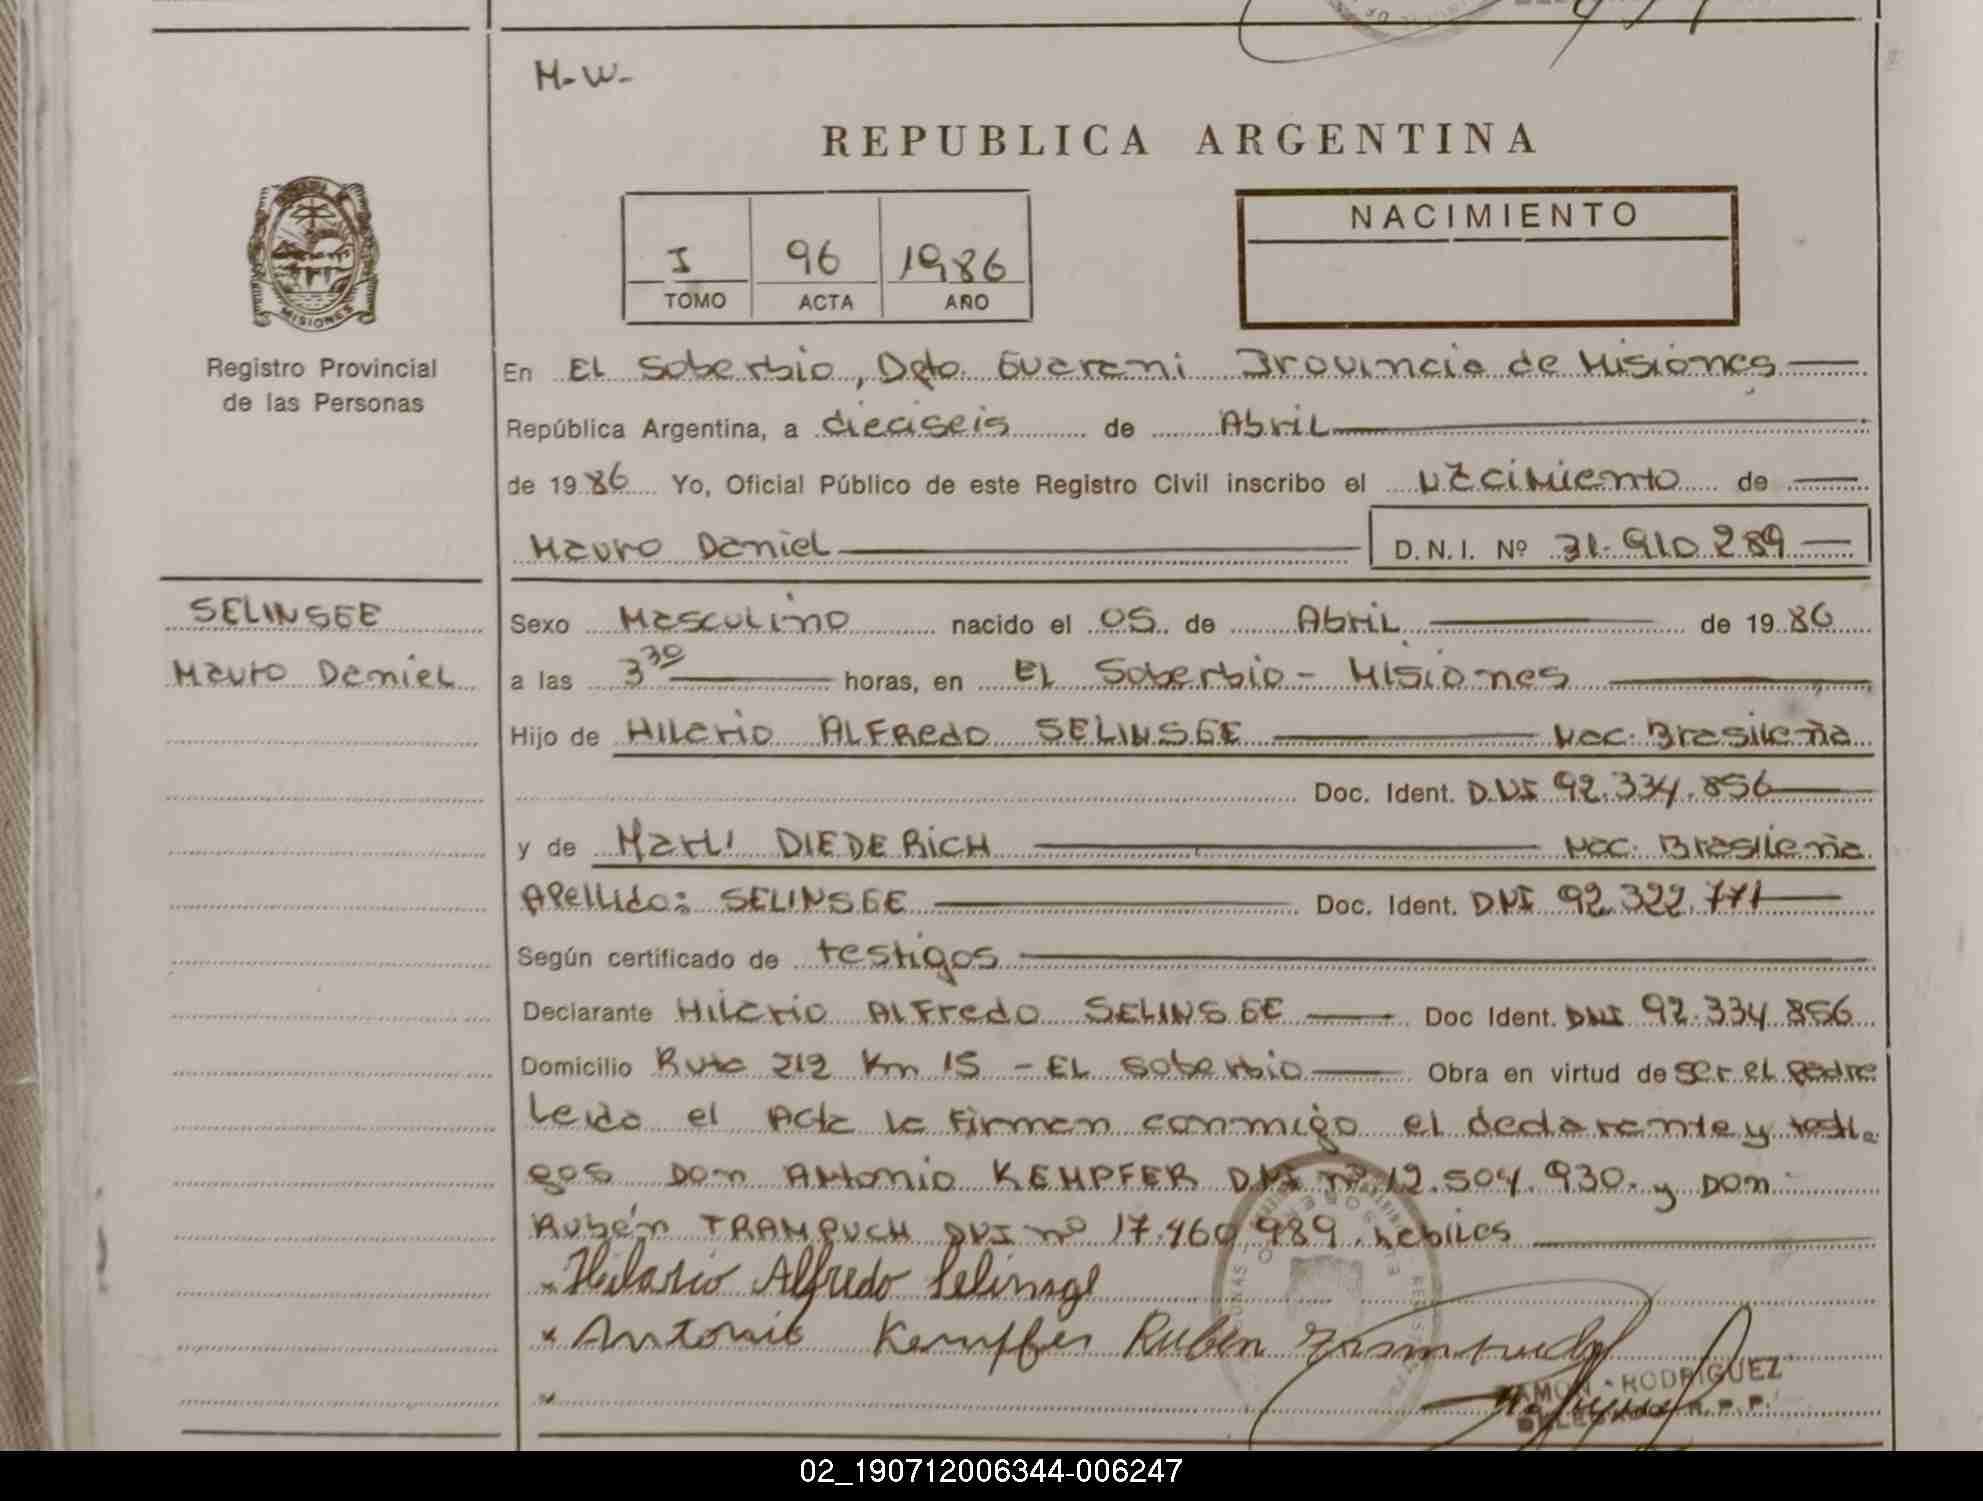 M-W-
REPUBLICA ARGENTINA
I 96 1986
TOMO ACTA AÑO
NACIMIENTO
MISIONES
Registro Provincial
de las Personas
En El Soberbio, Dpto. Guarani Provincia de Misiones
República Argentina, a dieciseis de Abril
de 19 86 Yo, Oficial Público de este Registro Civil inscribo el nacimiento de
Mauro Daniel D.N.I. Nº 31.910.289
SELINSGE
Mauro Daniel
Sexo Masculino nacido el 05 de Abril de 19 86
a las 3 30 horas, en El Soberbio - Misiones
Hijo de Hilario Alfredo SELINSGE Nac. Brasileña
Doc. Ident. DNI 92.334.856
y de Marli DIEDERICH Nac. Brasileña
Apellido: SELINSGE Doc. Ident. DNI 92.322.771
Según certificado de testigos
Declarante Hilario Alfredo SELINSGE Doc Ident. DNI 92.334.856
Domicilio Ruta 212 Km 15 - El Soberbio Obra en virtud de ser el padre
Leida el Acta la firman conmigo el declarante y testi-
gos Don Antonio KEMPFER DNI nº 12.504.930. y Don
Rubén TRAMPUCH DNI nº 17.460.989. habiles
Hilario Alfredo Selinsge
x Antonio Kempfer Ruben
RAMON RODRIGUEZ
02_190712006344-006247